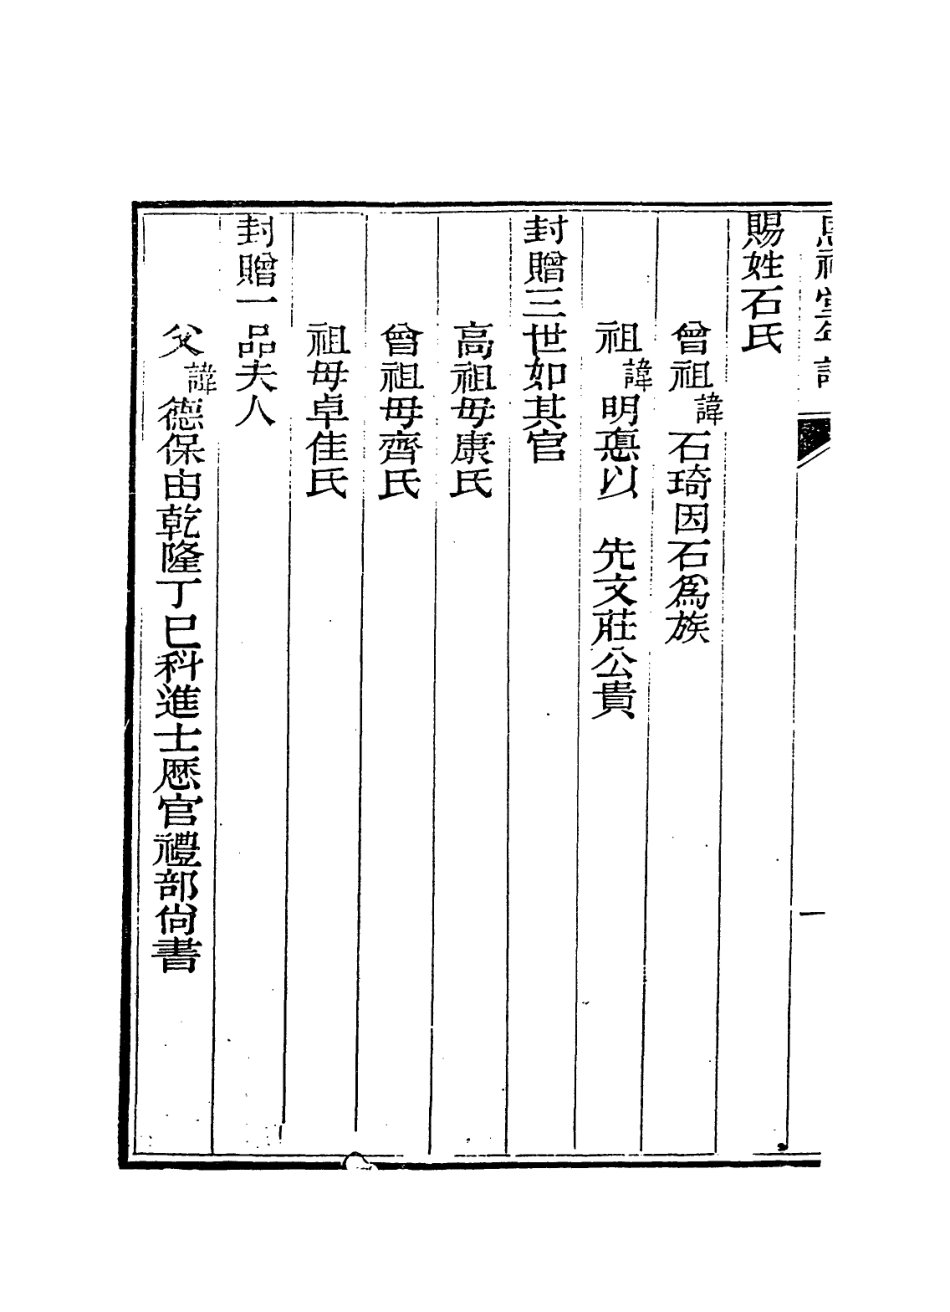 恩福堂年譜
一
賜姓石氏
曾祖諱石琦因石為族
祖諱明悳以 先文莊公貴
封贈三世如其官
高祖母康氏
曾祖母齊氏
祖母卓佳氏
封贈一品夫人
父諱德保由乾隆丁巳科進士歷官禮部尚書